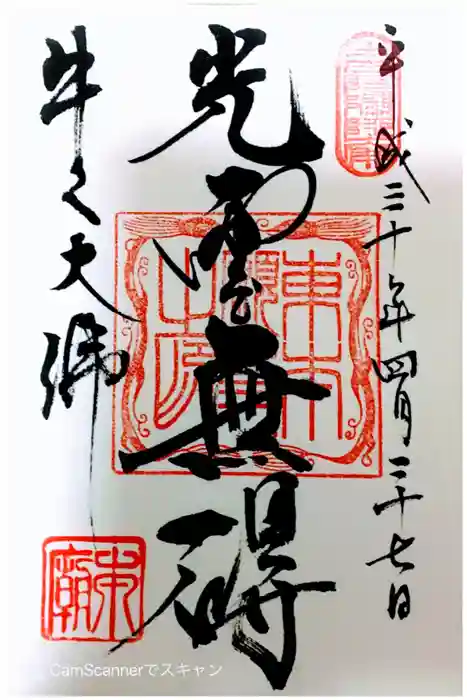 平成三十年四月二十七日
光雲無碍
牛久大佛
CamScannerでスキャン